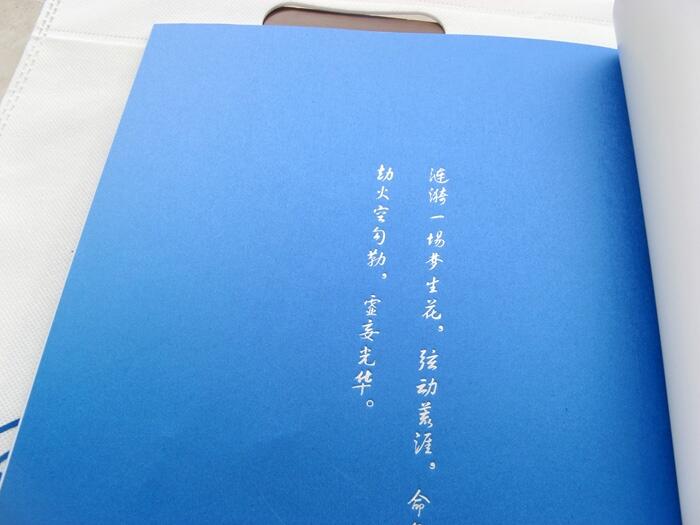 涟漪一場梦生花。弦动涯。命
劫火空勾勒。虛妄光华。